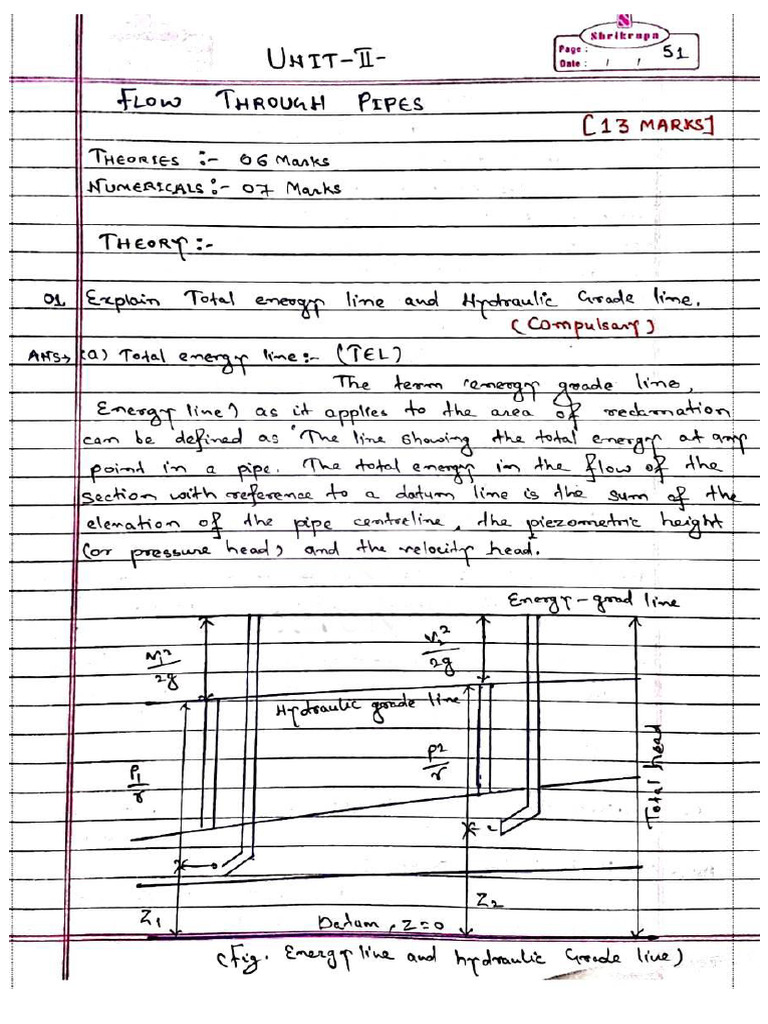 Shrikrupa
UNIT-II-
Page: 51
Date: / /
FLOW THROUGH PIPES
[13 MARKS]
THEORIES :- 06 Marks
NUMERICALS :- 07 Marks
THEORY :-
01 Explain Total energy line and Hydraulic Grade line.
(Compulsary)
ANS→ (a) Total energy line :- (TEL)
The term (energy grade line,
Energy line) as it applies to the area of reclamation
can be defined as 'The line showing the total energy at any
point in a pipe. The total energy in the flow of the
section with reference to a datum line is the sum of the
elevation of the pipe centreline, the piezometric height
(or pressure head) and the velocity head.
Energy-grad line
V₁²/2g
V₂²/2g
Hydraulic grade line
P₁/r
P2/r
Total head
Z₁
Z₂
Datum, Z=0
(Fig. Energy line and hydraulic Grade line)